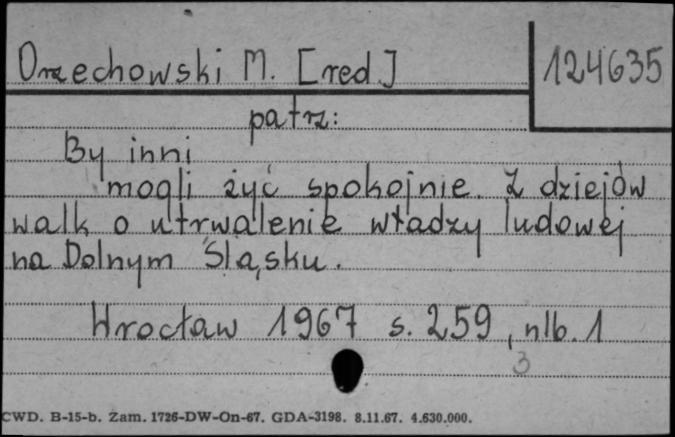 Orzechowski M. [red.] 124635
patrz:
By inni
mogli żyć spokojnie. Z dziejów
walk o utrwalenie władzy ludowej
na Dolnym Śląsku.
Wrocław 1967 s. 259, nlb. 1
3
CWD. B-15-b. Zam. 1726-DW-On-67. GDA-3198. 8.11.67. 4.630.000.